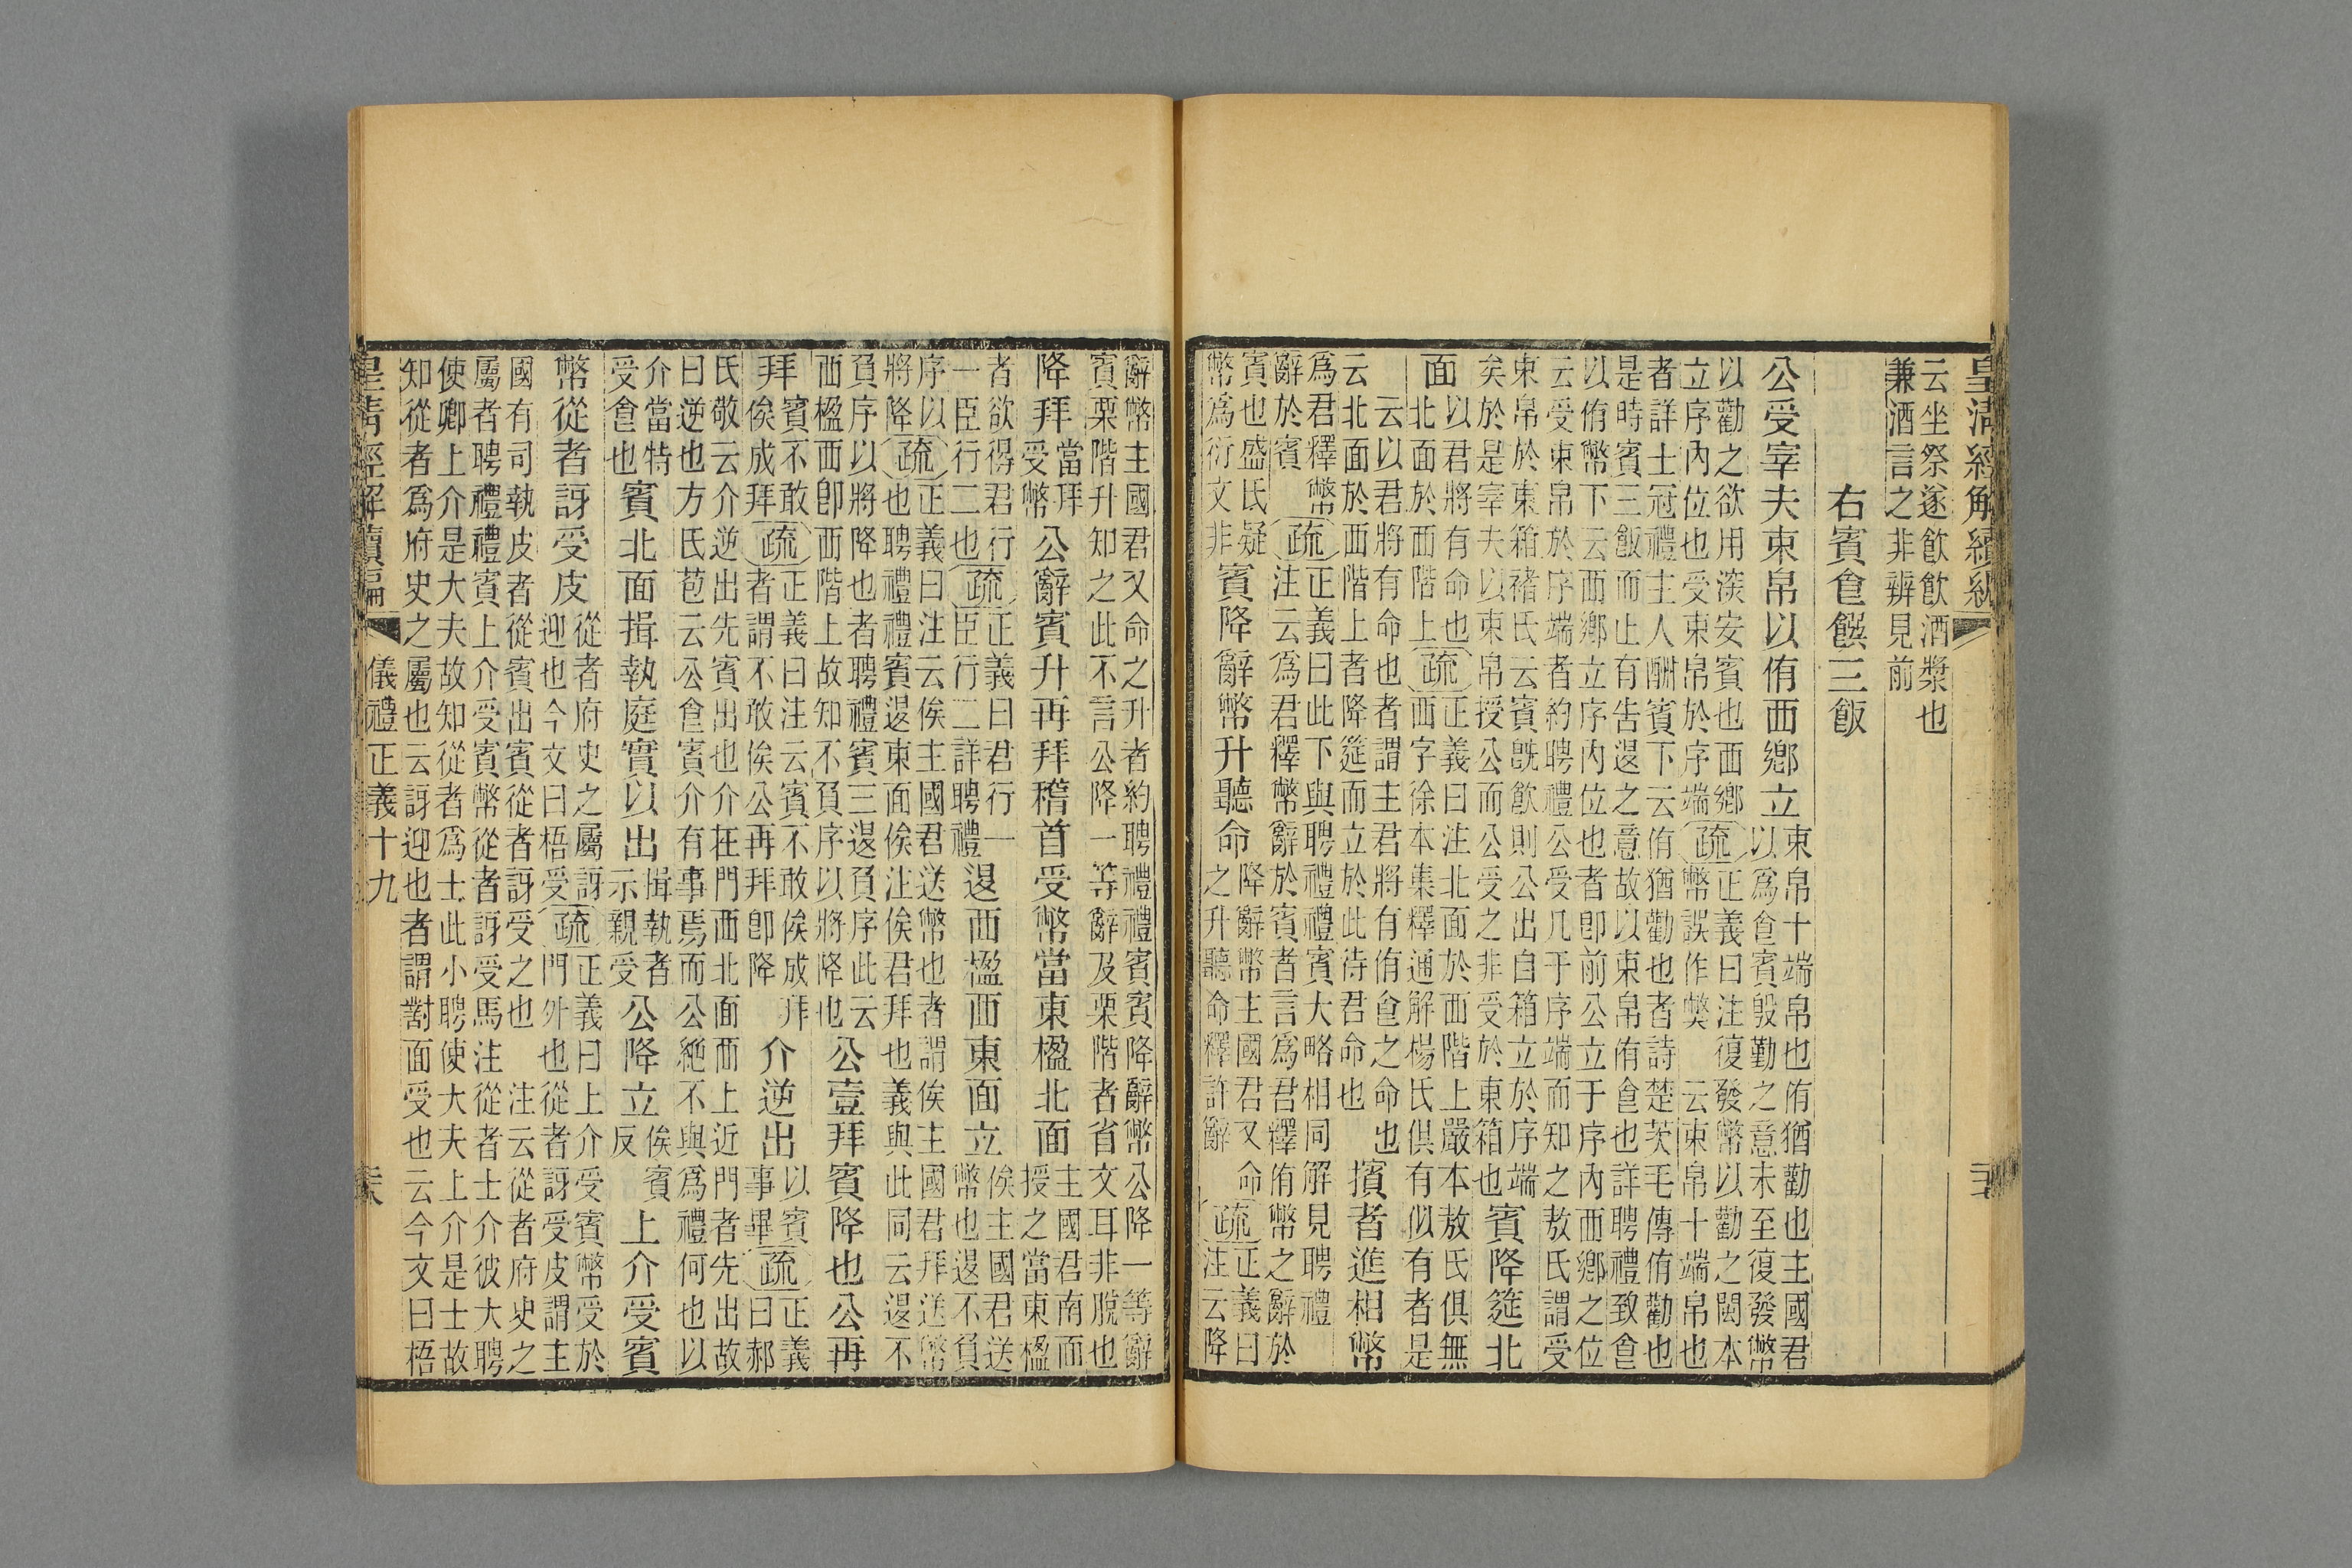 皇清經解續編
云坐祭遂飲飲酒漿也
兼酒言之非辨見前
右賓食饌三飯
公受宰夫束帛以侑西鄉立
束帛十端帛也侑猶勸也主國君
以爲食賓殷勤之意未至復發幣
以勸之欲用深安賓也西鄉
立序內位也受束帛於序端
疏
正義曰注復發幣以勸之閩本
幣誤作獘 云束帛十端帛也
者詳士冠禮主人酬賓下云侑猶勸也者詩楚茨毛傳侑勸也
是時賓三飯而止有告退之意故以束帛侑食也詳聘禮致食
以侑幣下云西鄉立序內位也者卽前公立于序內西鄉之位
云受束帛於序端者約聘禮公受几于序端而知之敖氏謂受
束帛於東箱褚氏云賓旣飲則公出自箱立於序端
矣於是宰夫以束帛授公而公受之非受於東箱也
賓降筵北
面
以君將有命也
北面於西階上
疏
正義曰注北面於西階上嚴本敖氏俱無
西字徐本集釋通解楊氏俱有似有者是
云以君將有命也者謂主君將有侑食之命也
云北面於西階上者降筵而立於此待君命也
擯者進相幣
爲君釋幣
辭於賓
疏
正義曰此下與聘禮禮賓大略相同解見聘禮
注云爲君釋幣辭於賓者言爲君釋侑幣之辭於
賓也盛氏疑
幣爲衍文非
賓降辭幣升聽命
降辭幣主國君又命
之升聽命釋許辭
疏
正義曰
注云降
辭幣主國君又命之升者約聘禮禮賓賓降辭幣公降一等辭
賓栗階升知之此不言公降一等辭及栗階者省文耳非脫也
降拜
當拜
受幣
公辭賓升再拜稽首受幣當東楹北面
主國君南面
授之當東楹
者欲得君行
一臣行二也
疏
正義曰君行一
臣行二詳聘禮
退西楹西東面立
俟主國君送
幣也退不負
序以
將降
疏
正義曰注云俟主國君送幣也者謂俟主國君拜送幣
也聘禮禮賓退東面俟注俟君拜也義與此同云退不
負序以將降也者聘禮賓三退負序此云
西楹西卽西階上故知不負序以將降也
公壹拜賓降也公再
拜
賓不敢
俟成拜
疏
正義曰注云賓不敢俟成拜
者謂不敢俟公再拜卽降
介逆出
以賓
事畢
疏
正義
曰郝
氏敬云介逆出先賓出也介在門西北面西上近門者先出故
曰逆也方氏苞云公食賓介有事焉而公絕不與爲禮何也以
介當特
受食也
賓北面揖執庭實以出
揖執者
示親受
公降立
俟賓
反
上介受賓
幣從者訝受皮
從者府史之屬訝
迎也今文曰梧受
疏
正義曰上介受賓幣受於
門外也從者訝受皮謂主
國有司執皮者從賓出賓從者訝受之也 注云從者府史之
屬者聘禮禮賓上介受賓幣從者訝受馬注從者士介彼大聘
使卿上介是大夫故知從者爲士此小聘使大夫上介是士故
知從者爲府史之屬也云訝迎也者謂對面受也云今文曰梧
皇清經解續編 儀禮正義十九